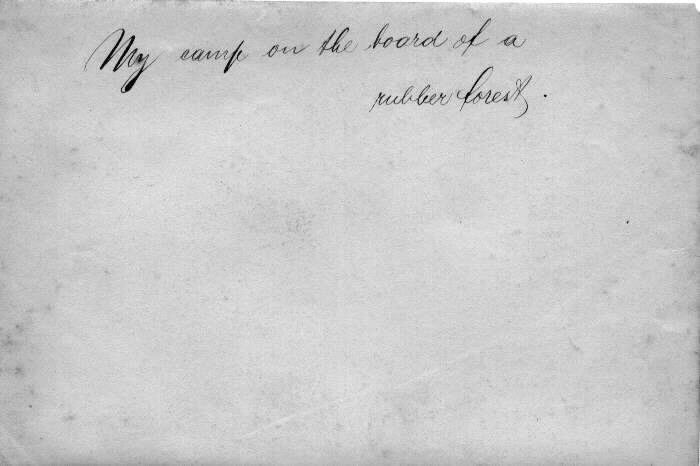 My camp on the board of a
rubber forest.